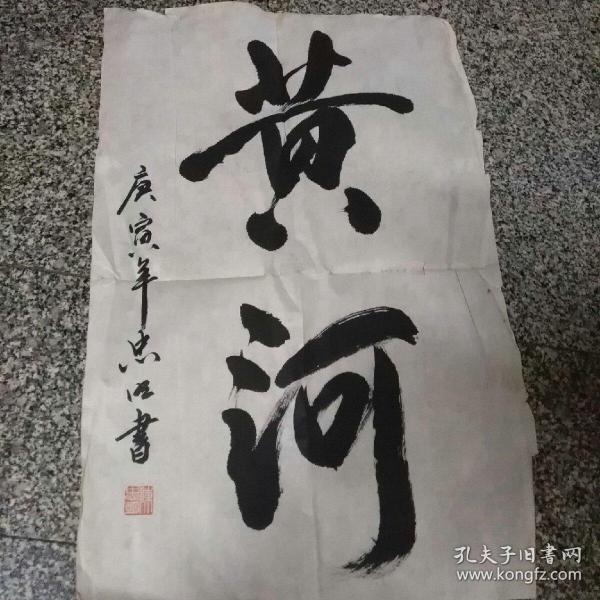 黄河
庚寅年忠江書
孔夫子旧书网
www.kongfz.com